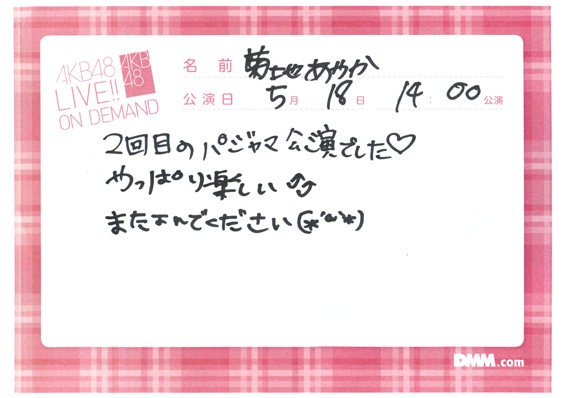 AKB48
LIVE!!
ON DEMAND
AKB
48
名前 菊地あやか
公演日 5月 18日 14:00公演
2回目のパジャマ公演でした♡
やっぱり楽しい⤴⤴
またよんでください(*´ω`*)
DMM.com